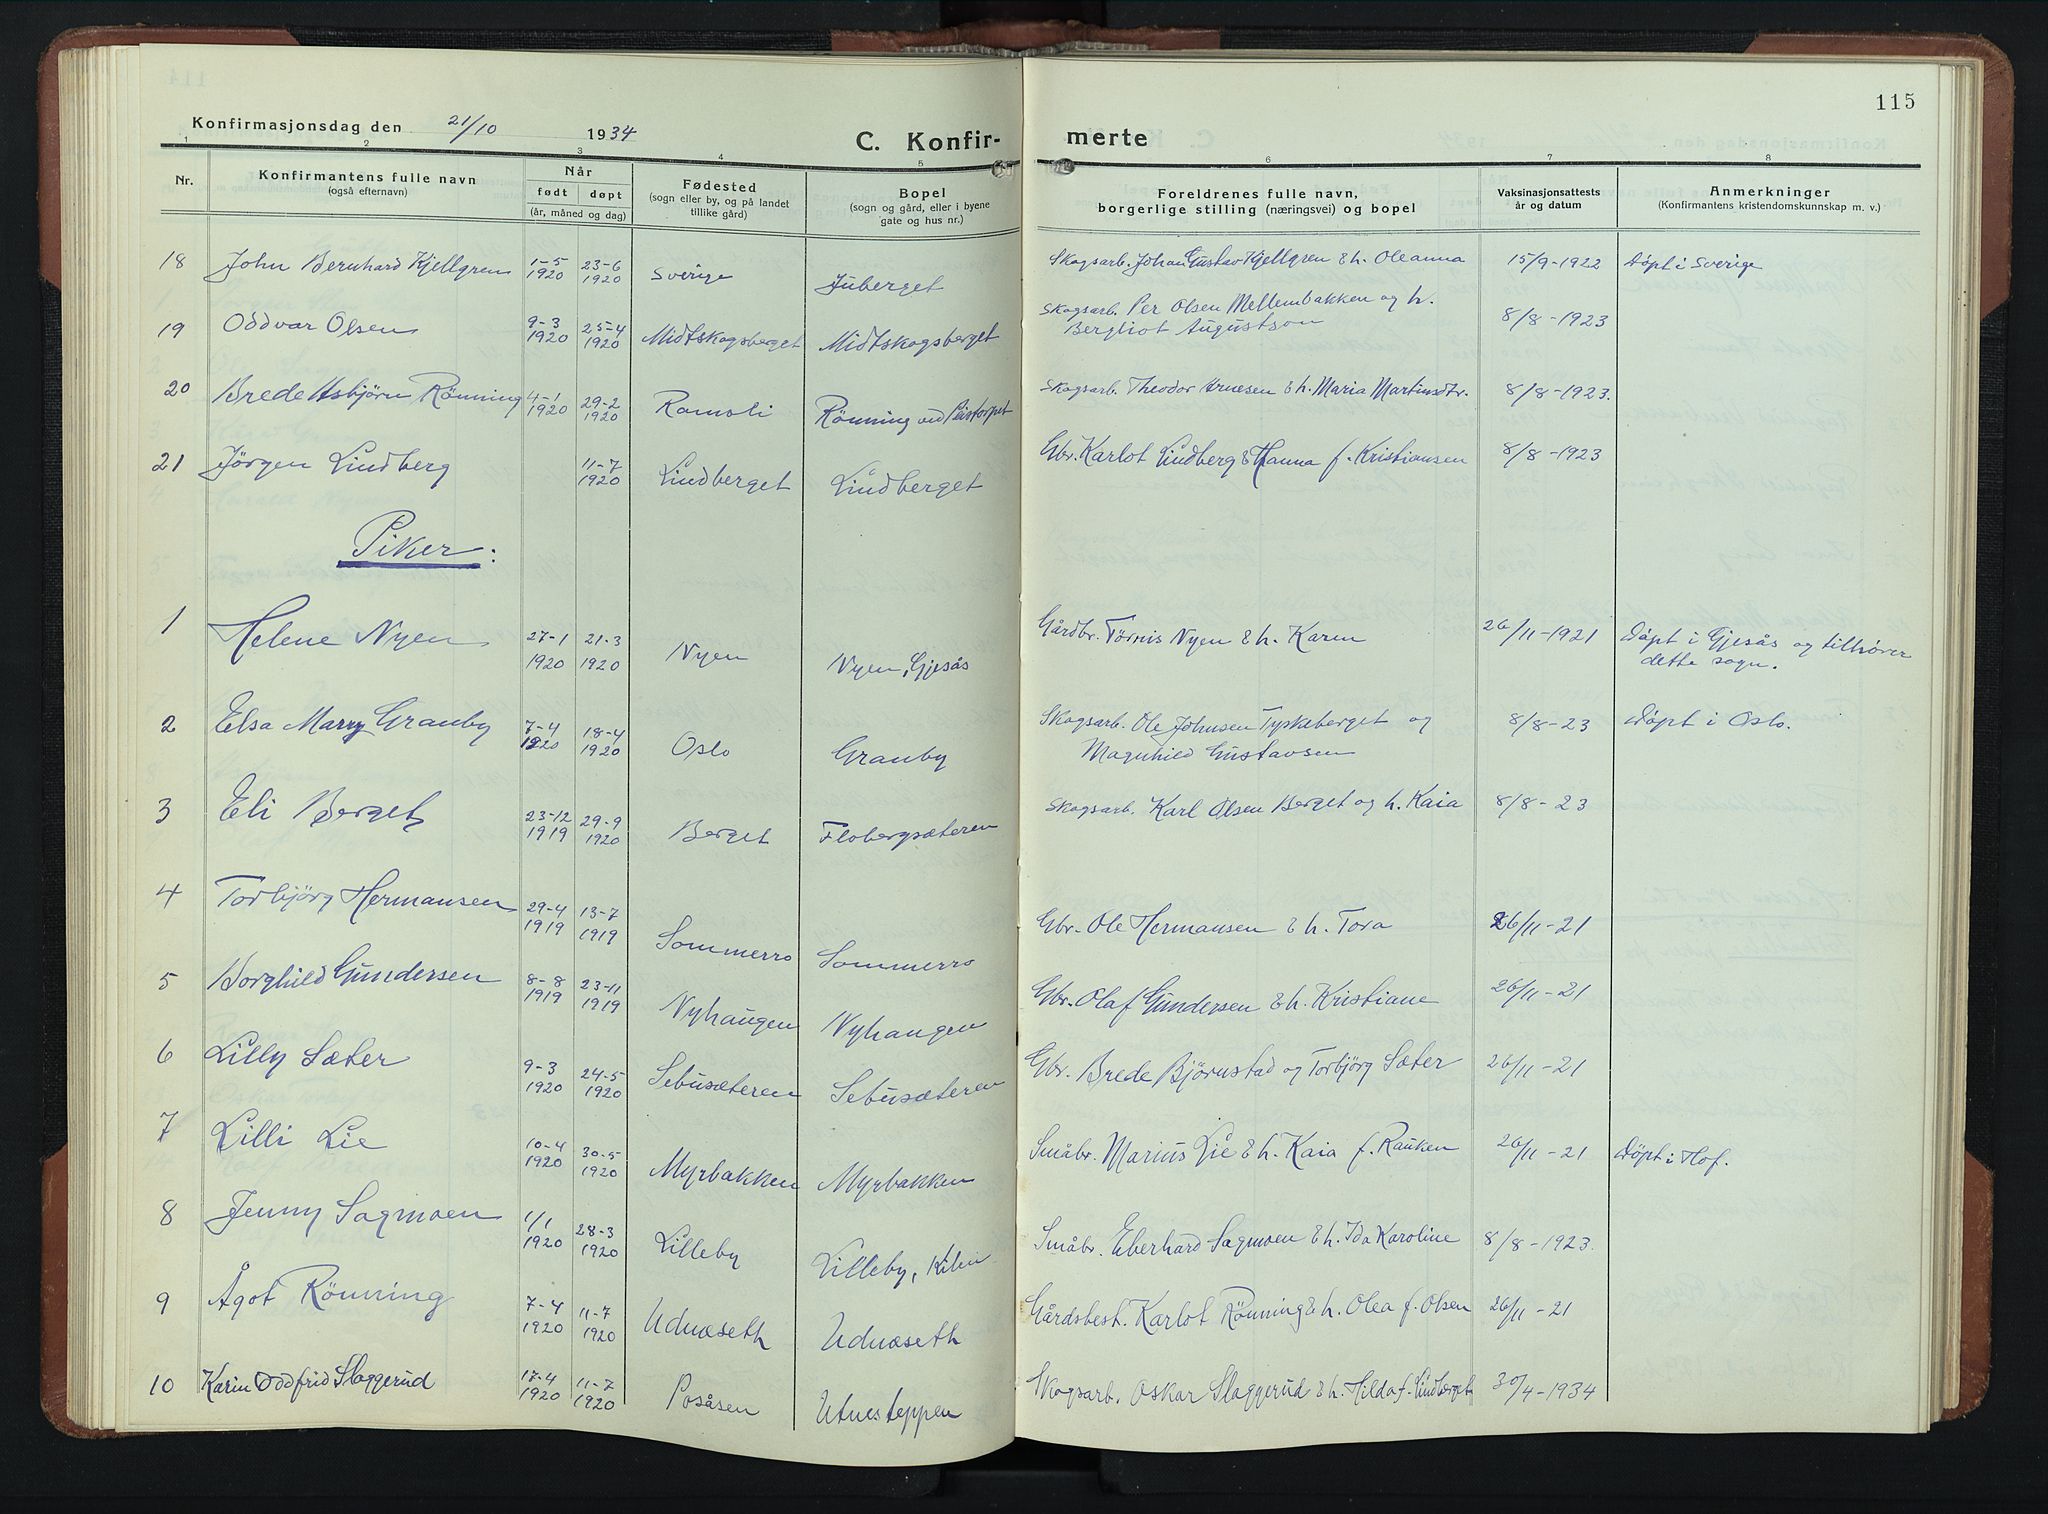 115
Konfirmasjonsdag den 21/10 1934
C. Konfir- merte
1 2 3 4 5 6 7 8
Nr. Konfirmantens fulle navn (også efternavn) Når født døpt (år, måned og dag) Fødested (sogn eller by, og på landet tillike gård) Bopel (sogn og gård, eller i byene gate og hus nr.) Foreldrenes fulle navn, borgerlige stilling (næringsvei) og bopel Vaksinasjonsattests år og datum Anmerkninger (Konfirmantens kristendomskunnskap m. v.)
18 John Bernhard Kjellgren 1-5 1920 23-6 1920 Sverige Juberget Skogsarb. Johan Gustav Kjellgren & h. Oleanna 15/9-1922 Döpt i Sverige
19 Oddvar Olsen 9-3 1920 25-4 1920 Midtskogsberget Midtskogsberget Skogsarb. Per Olsen Mellembakken og h. Bergliot Augustson 8/8-1923
20 Brede Asbjörn Rönning 4-1 1920 29-2 1920 Ramsli Rönning ved Peistorpet Skogsarb. Theodor Arnesen & h. Maria Martinsdtr. 8/8-1923.
21 Jörgen Lindberg 11-7 1920 Lindberget Lindberget Gbr. Karlot Lindberg & Hanna f. Kristiansen 8/8-1923
Piker:
1 Helene Nyen 27-1 1920 21-3 1920 Nyen Nyen, Gjesås Gårdbr. Tørnis Nyen & h. Karen 26/11-1921 Döpt i Gjesås og tilhører dette sogn.
2 Elsa Marry Granby 7-4 1920 18-4 1920 Oslo Granby Skogsarb. Ole Johnsen Tyskeberget og Magnhild Gustavsen 8/8-23 Döpt i Oslo.
3 Eli Berget 23-12 1919 29-9 1920 Berget Flobergsæteren Skogsarb. Karl Olsen Berget og h. Kaia 8/8-23
4 Torbjörg Hermansen 29-4 1919 13-7 1919 Sommerro Sommerro Gbr. Ole Hermansen & h. Tora 26/11-21
5 Borghild Gundersen 8-8 1919 23-11 1919 Nyhaugen Nyhaugen Gbr. Olaf Gundersen & h. Kristiane 26/11-21
6 Lilly Sæter 9-3 1920 24-5 1920 Sebusæteren Sebusæteren Gbr. Brede Björnstad og Torbjörg Sæter 26/11-21
7 Lilli Lie 10-4 1920 30-5 1920 Myrbakken Myrbakken Småbr. Marius Lie & h. Kaia f. Rauken 26/11-21 Döpt i Hof.
8 Jenny Sagmoen 1/1 1920 28-3 1920 Lilleby Lilleby, Kilen Småbr. Eberhard Sagmoen & h. Ida Karoline 8/8-1923.
9 Ågot Rönning 7-4 1920 11-7 1920 Udnæseth Udnæseth Gårdsbest. Karlot Rönning & h. Olea f. Olsen 26/11-21
10 Karin Oddfrid Slaggerud 17-4 1920 11-7 1920 Posåsen Utnesteppen Skogsarb. Oskar Slaggerud & h. Hilda f. Lindberget 30/4-1934